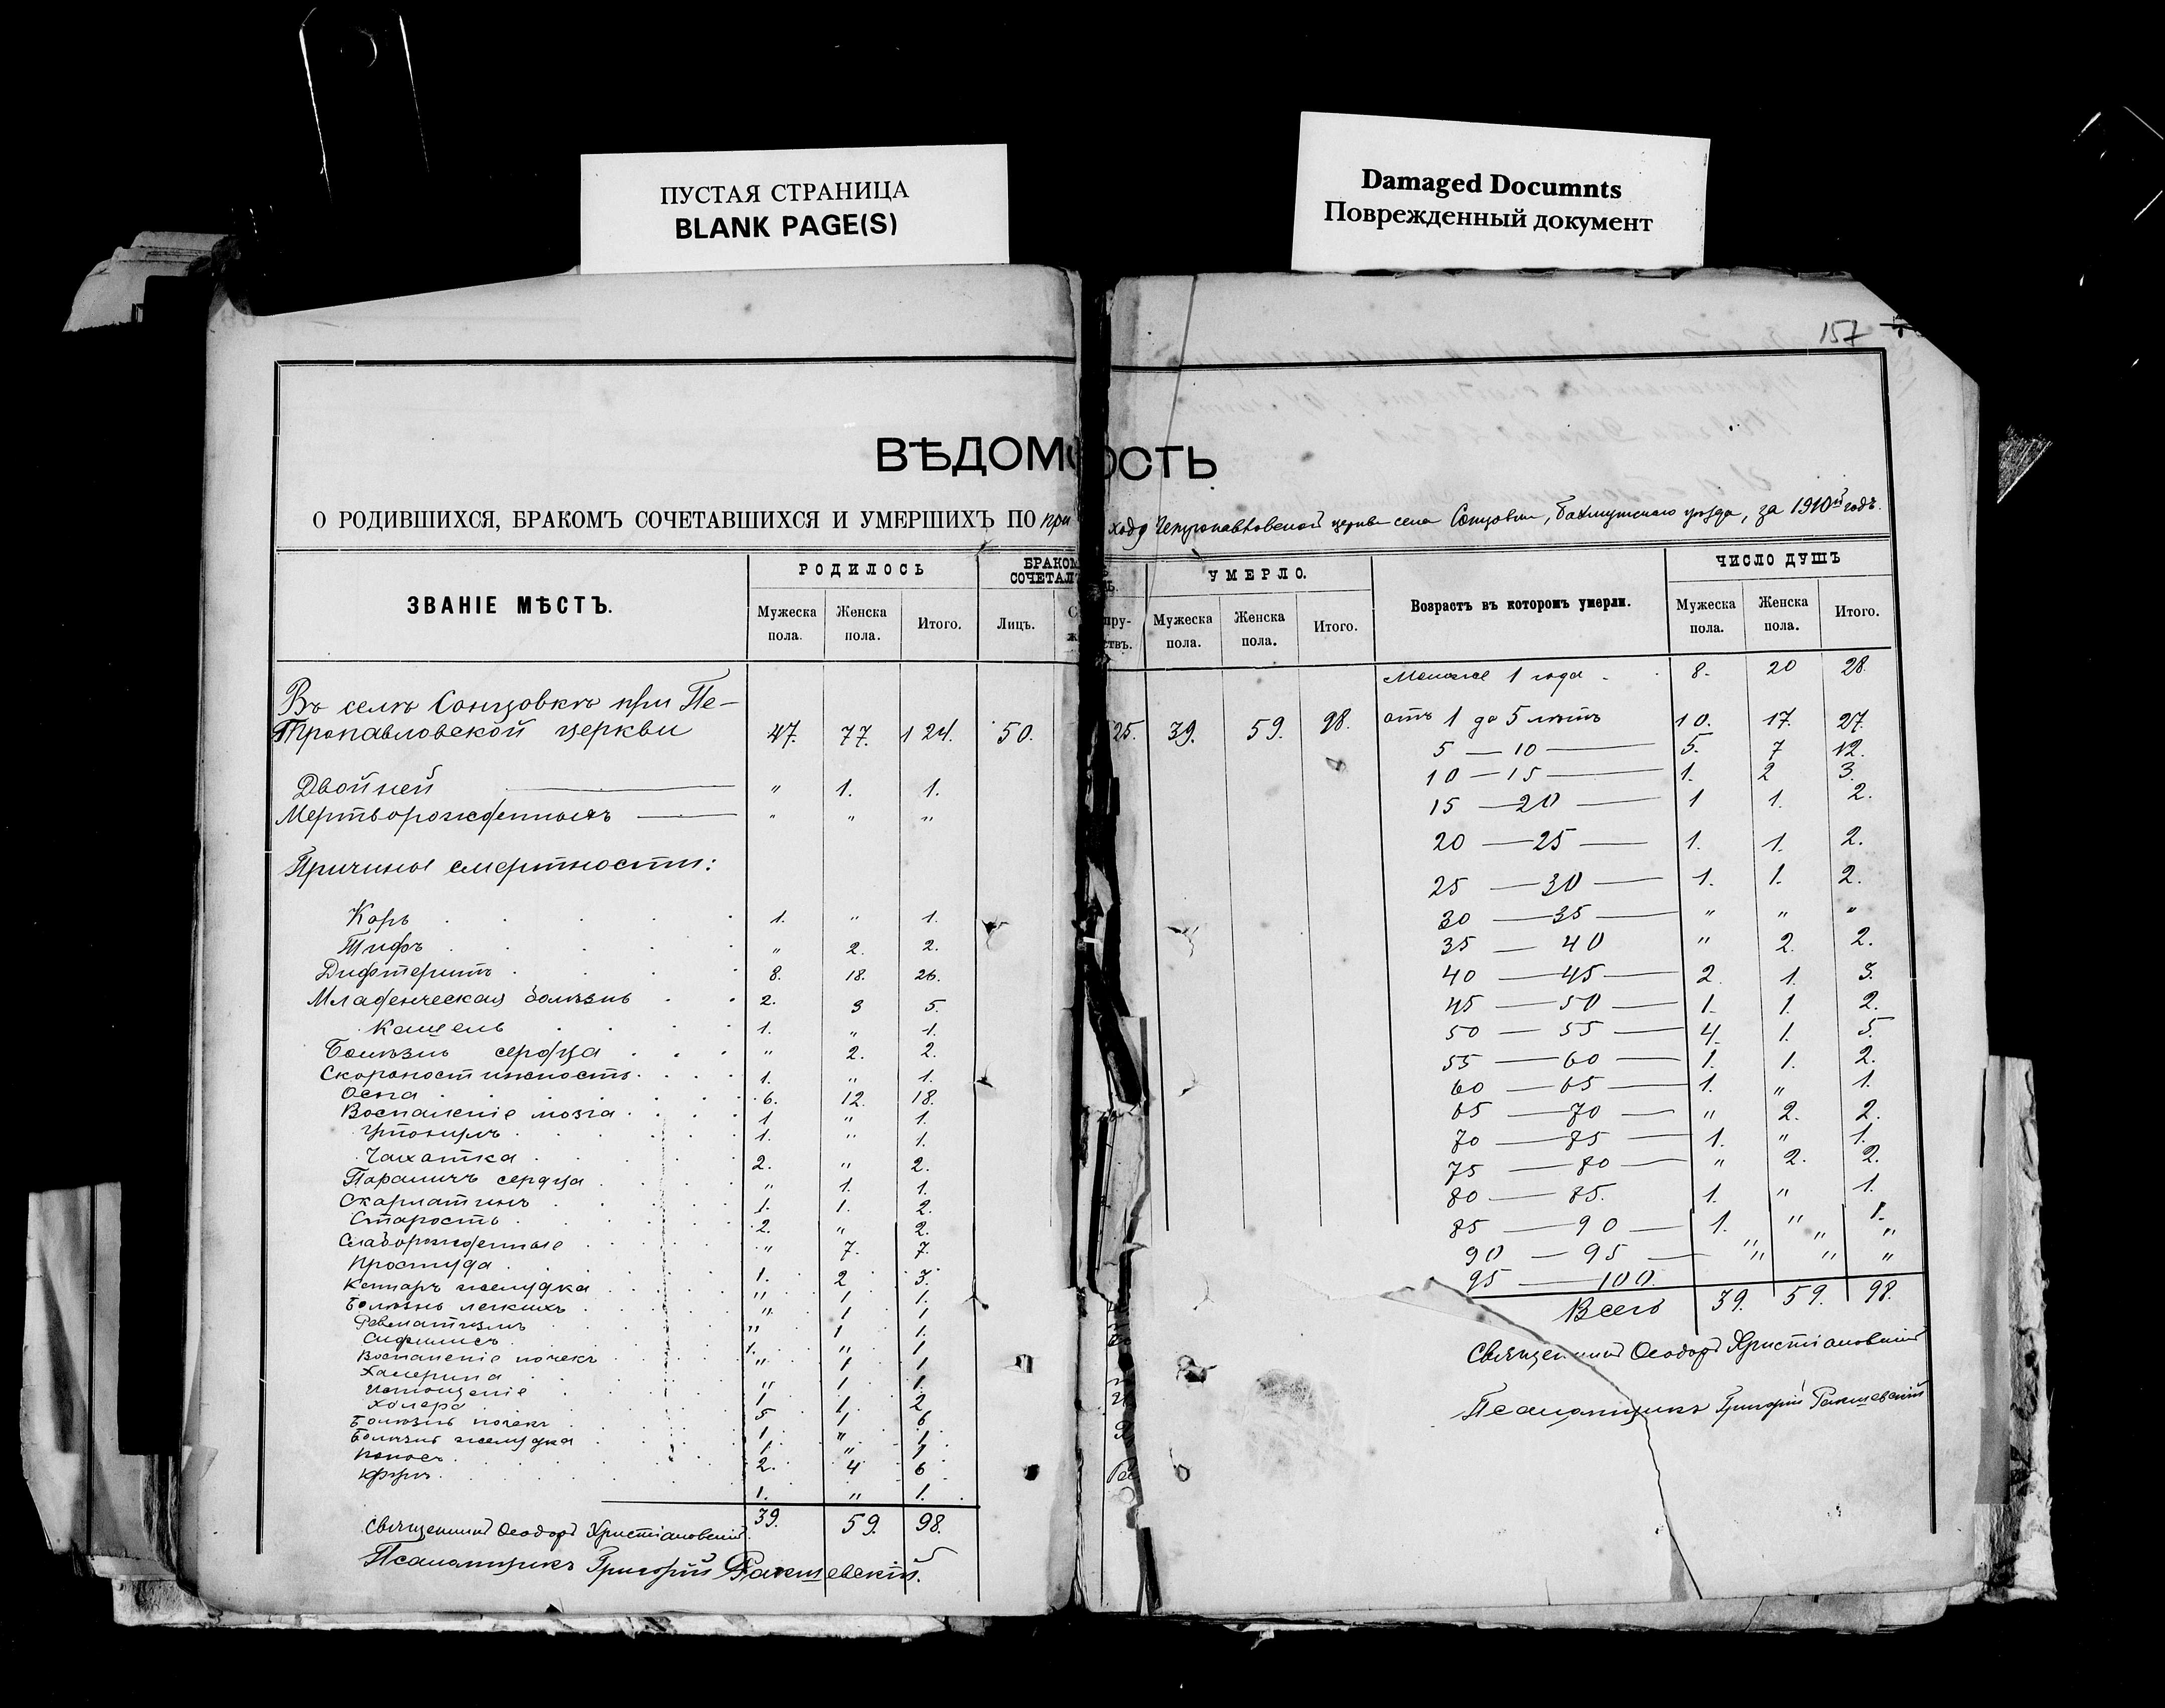 ПУСТАЯ СТРАНИЦА
BLANK PAGE(S)
Damaged Documnts
Поврежденный документ
157
ВѢДОМОСТЬ
О РОДИВШИХСЯ, БРАКОМЪ СОЧЕТАВШИХСЯ И УМЕРШИХЪ ПО приходу Петропавловской церкви села Сонцовки, Бахмутскаго уѣзда, за 1910й годъ.
ЗВАНІЕ МѢСТЪ. РОДИЛОСЬ БРАКОМЪ СОЧЕТАЛОСЬ. УМЕРЛО. Возрастъ въ которомъ умерли. ЧИСЛО ДУШЪ
Мужеска пола. Женска пола. Итого. Лицъ. Супружествъ. Мужеска пола. Женска пола. Итого. Мужеска пола. Женска пола. Итого.
Въ селѣ Сонцовкѣ при Пе-
тропавловской церкви 47. 77. 124. 50. 25. 39. 59. 98.
Двойней " 1. 1.
Мертворожденныхъ " " "
Причины смертности:
Корь 1. " 1.
Тифъ " 2. 2.
Дифтеритъ 8. 18. 26.
Младенческая болѣзнь 2. 3 5.
Кашель 1. " 1.
Болѣзнь сердца " 2. 2.
Скоропостижность 1. " 1.
Оспа 6. 12. 18.
Воспаленіе мозга 1 " 1.
Утонулъ 1. " 1.
Чахотка 2. " 2.
Параличъ сердца " 1. 1.
Скарлатинъ 1. 1. 2.
Старость 2. " 2.
Слаборожденные " 7. 7.
Простуда 1. 2 3.
Катаръ желудка " 1 1.
Болѣзнь легкихъ " 1 1
Ревматизмъ " 1 1.
Сифилисъ 1. " 1
Воспаленіе почекъ " 1 1
Холерина " 1 1.
Истощеніе 1 1. 2
Холера 5 1 6
Болѣзнь почекъ 1 " 1
Болѣзнь желудка 1. " 1
Поносъ 2. 4 6
Крупъ 1. " 1.
39. 59. 98.
Священникъ Ѳеодоръ Христіановскій
Псаломщикъ Григорій Ракшевскій.
Меньше 1 года 8. 20 28
отъ 1 до 5 лѣтъ 10. 17. 27.
5 — 10 — 5. 7 12.
10 — 15 — 1. 2 3.
15 — 20 — 1 1. 2.
20 — 25 — 1. 1. 2.
25 — 30 — 1. 1. 2.
30 — 35 — " " "
35 — 40 " 2. 2.
40 — 45 — 2 1. 3.
45 — 50 — 1. 1. 2.
50 — 55 — 4. 1. 5.
55 — 60 — 1. 1. 2.
60 — 65 — 1. " 1.
65 — 70 — " 2. 2.
70 — 75 — 1. " 1.
75 — 80 — " 2. 2.
80 — 85. 1. " 1.
85 — 90 — 1. " 1.
90 — 95 — " " "
95 — 100. " " "
Всего 39. 59. 98.
Священникъ Ѳеодоръ Христіановскій
Псаломщикъ Григорій Ракшевскій